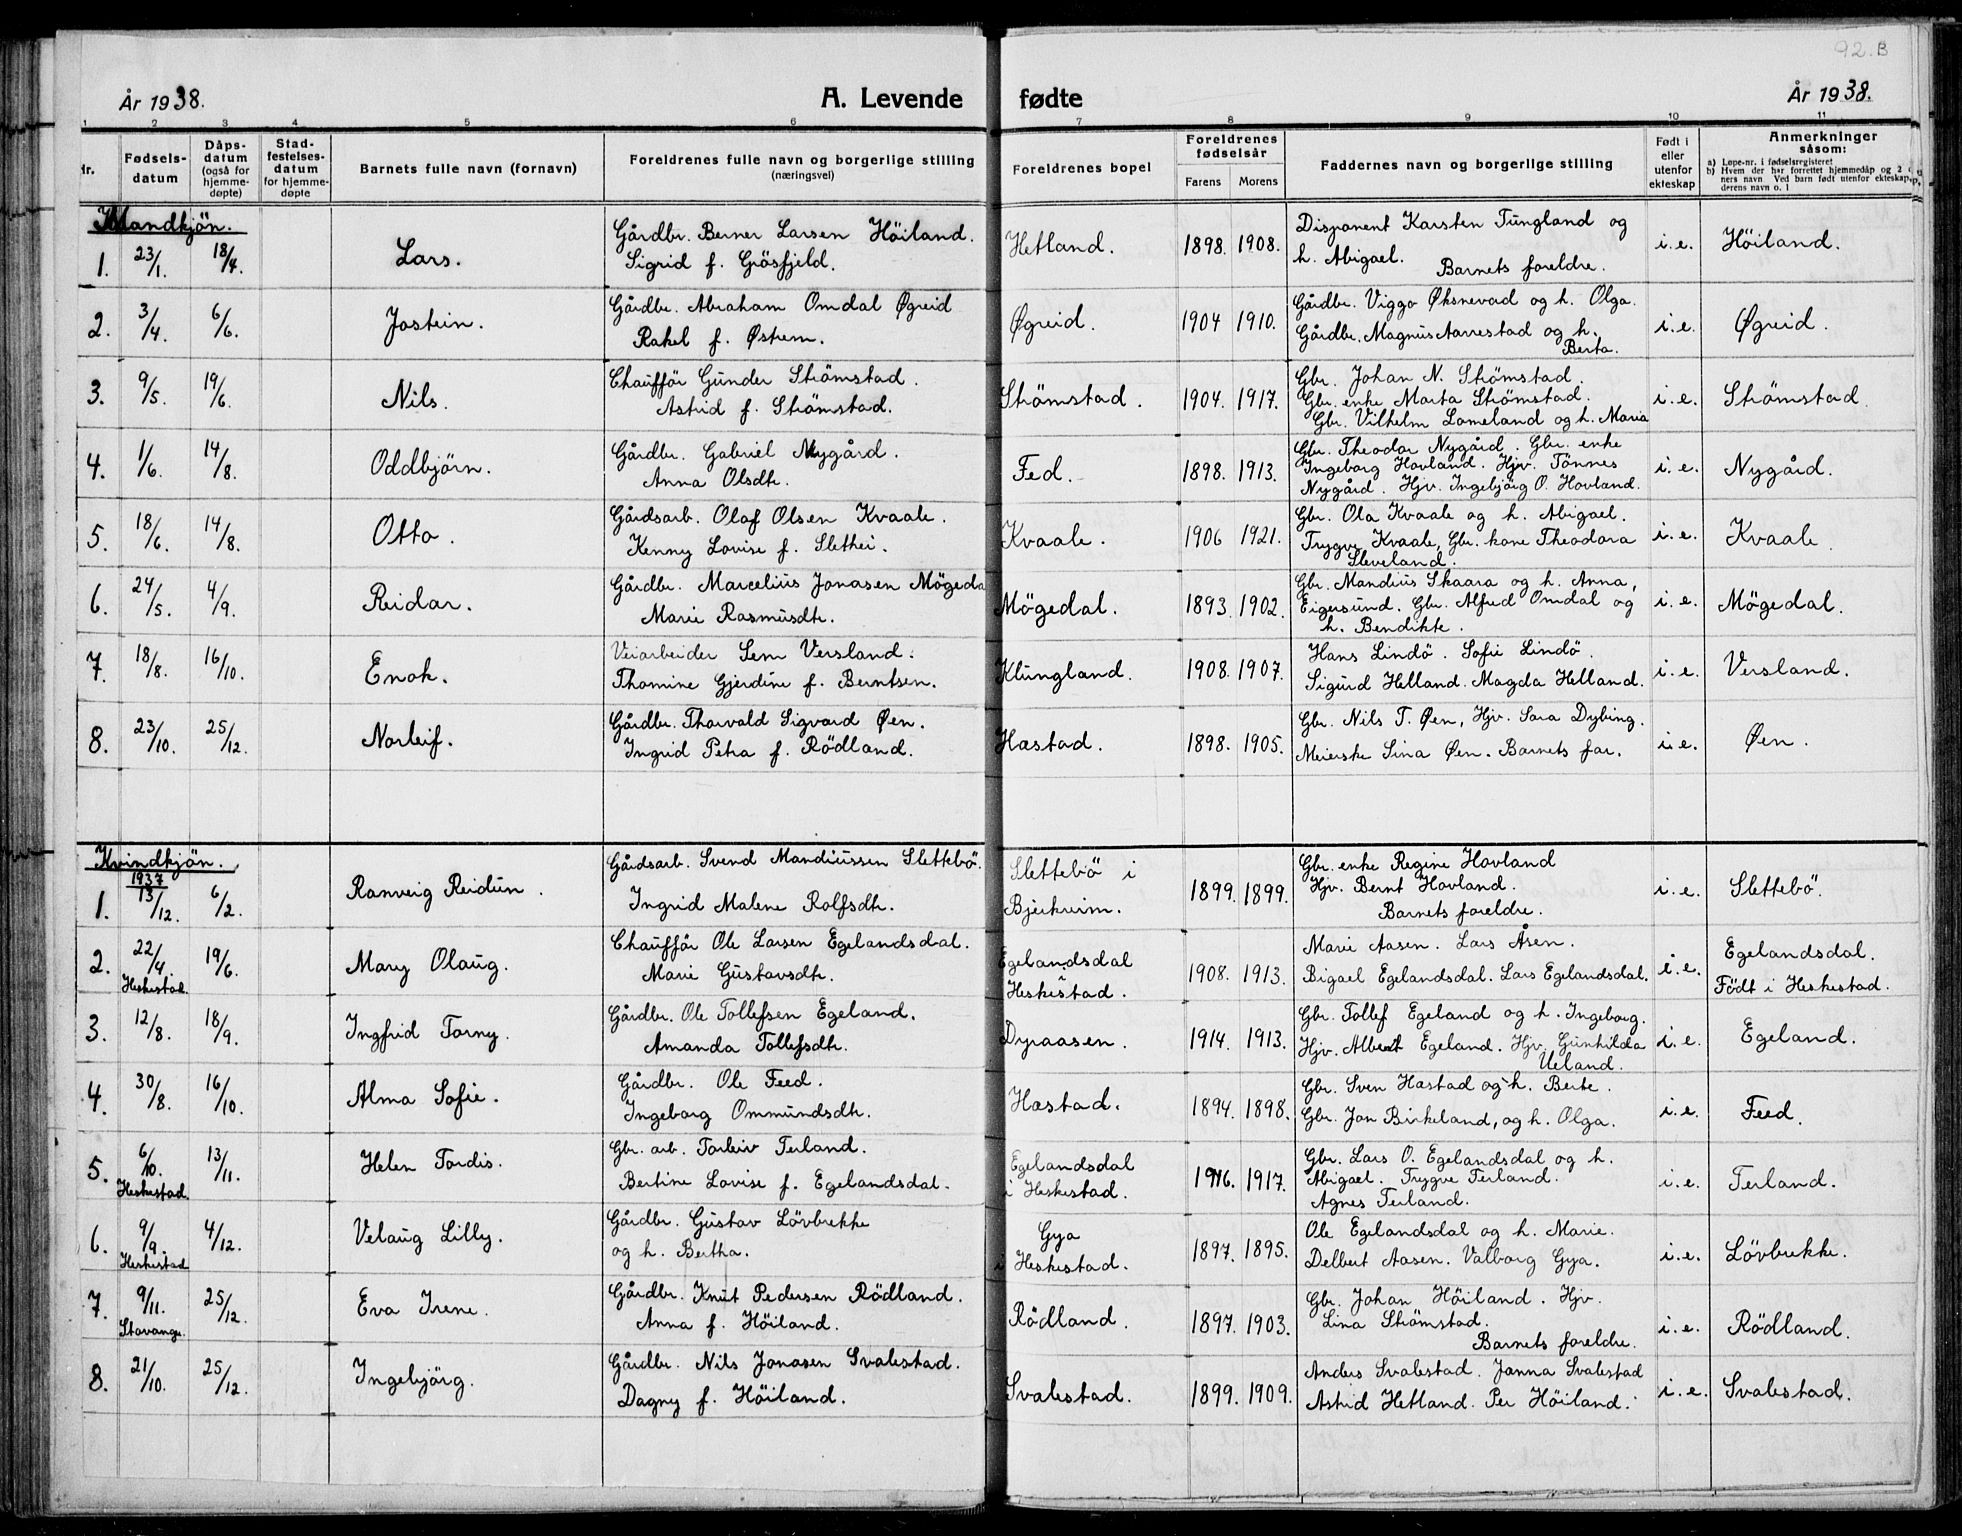 92.B
År 1938.
A. Levende fødte
År 1938.
1 2 3 4 5 6 7 8 9 10 11
Nr.
Fødsels-
datum
Dåps-
datum
(også for
hjemme-
døpte)
Stad-
festelses-
datum
for hjemme-
døpte
Barnets fulle navn (fornavn)
Foreldrenes fulle navn og borgerlige stilling
(næringsvei)
Foreldrenes bopel
Foreldrenes
fødselsår
Farens Morens
Faddernes navn og borgerlige stilling
Født i
eller
utenfor
ekteskap
Anmerkninger
såsom:
a) Løpe-nr. i fødselsregisteret
b) Hvem der har forrettet hjemmedåp og 2
ners navn Ved barn født utenfor ekteskap,
derens navn o. l
Mandkjön.
1. 23/1. 18/4. Lars.
Gårdbr. Berner Larsen Höiland.
Sigrid f. Grösfjeld.
Hetland. 1898. 1908.
Disponent Karsten Tungland og
h. Abigael.
Barnets foreldre.
i.e. Höiland.
2. 3/4. 6/6. Jostein.
Gårdbr. Abraham Omdal Øgreid
Rakel f. Østrem.
Øgreid. 1904 1910.
Gårdbr. Viggo Øksnevad og h. Olga.
Gårdbr. Magnus Aarrestad og h.
Berta.
i.e. Øgreid.
3. 9/5. 19/6. Nils.
Chaufför Gunder Strömstad.
Astrid f. Strömstad.
Strömstad. 1904. 1917.
Gbr. Johan N. Strömstad.
Gbr. enke Marta Strömstad.
Gbr. Vilhelm Lomeland og h. Maria
i.e. Strömstad
4. 1/6. 14/8. Oddbjörn.
Gårdbr. Gabriel Nygård.
Anna Olsdtr.
Fed. 1898. 1913.
Gbr. Theodor Nygård. Gbr. enke
Ingeborg Hovland. Hjv. Tönnes
Nygård. Hjv. Ingebjörg O. Hovland.
i.e. Nygård.
5. 18/6. 14/8. Otto.
Gårdsarb. Olaf Olsen Kvaale.
Kenny Lovise f. Slethei.
Kvaale. 1906 1921.
Gbr. Ola Kvaale og h. Abigael.
Trygve Kvaale, Gbr. kone Theodora
Sleveland.
i.e. Kvaale.
6. 24/5. 4/9. Reidar.
Gårdbr. Marcelius Jonasen Mögeda
Marie Rasmusdtr.
Mögedal. 1893. 1902.
Gbr. Mandius Skaara og h. Anna,
Eigersund. Gbr. Alfred Omdal og
h. Bendikte.
i.e. Mögedal.
7. 18/8. 16/10. Enok.
Veiarbeider Sem Versland.
Thomine Gjerdine f. Berntsen.
Klungland. 1908. 1907.
Hans Lindö. Sofie Lindö.
Sigurd Helland. Magda Helland.
i.e. Versland.
8. 23/10. 25/12. Norleif.
Gårdbr. Thorvald Sigvard Øen.
Ingrid Petra f. Rödland.
Hæstad. 1898. 1905.
Gbr. Nils T. Øen, Hjv. Sara Dybing.
Meierske Sina Øen. Barnets far.
i.e. Øen.
Kvindkjön.
1937
1. 13/12. 6/2. Ranveig Reidun.
Gårdsarb. Svend Mandiussen Slettebö.
Ingrid Malene Rolfsdtr.
Slettebö i
Bjerkreim.
1899. 1899.
Gbr. enke Regine Hovland
Hjv. Bernt Hovland.
Barnets foreldre.
i.e. Slettebö.
2. 22/4. Heskestad. 19/6. Mary Olaug.
Chaufför Ole Larsen Egelandsdal.
Marie Gustavsdtr.
Egelandsdal
Heskestad.
1908. 1913.
Marie Aasen. Lars Åsen.
Bigael Egelandsdal. Lars Egelandsdal.
i.e. Egelandsdal.
Födt i Heskestad.
3. 12/8. 18/9. Ingfrid Torny.
Gårdbr. Ole Tollefsen Egeland.
Amanda Tollefsdtr.
Dyraasen. 1914. 1913.
Gbr. Tollef Egeland og h. Ingeborg.
Hjv. Albert Egeland. Hjv. Gunhilda
Ueland.
i.e. Egeland.
4. 30/8. 16/10. Alma Sofie.
Gårdbr. Ole Feed.
Ingeborg Ommundsdtr.
Hæstad. 1894. 1898.
Gbr. Sven Hæstad og h. Berte.
Gbr. Jon Birkeland, og h. Olga.
i.e. Feed.
5. 6/10. Heskestad. 13/11. Helen Tordis.
Gbr. arb. Torleiv Terland.
Bertine Lovise f. Egelandsdal.
Egelandsdal
i Heskestad.
1916. 1917.
Gbr. Lars O. Egelandsdal og h.
Abigael. Trygve Terland.
Agnes Terland.
i.e. Terland.
6. 9/9. Heskestad 4/12. Velaug Lilly.
Gårdbr. Gustav Lövbrekke
og h. Bertha.
Gya
i Heskestad.
1897. 1895.
Ole Egelandsdal og h. Marie.
Delbert Aasen. Valborg Gya.
i.e. Lövbrekke.
7. 9/11. Stavange. 25/12. Eva Irene.
Gårdbr. Knut Pedersen Rödland.
Anna f. Höiland.
Rödland. 1897. 1903.
Gbr. Johan Höiland. Hjv.
Lina Strömstad.
Barnets foreldre.
i.e. Rödland.
8. 21/10. 25/12. Ingebjörg.
Gårdbr. Nils Jonasen Svalestad.
Dagny f. Höiland.
Svalestad. 1899. 1909.
Anders Svalestad. Janna Svalestad
Astrid Hetland. Per Höiland.
i.e. Svalestad.